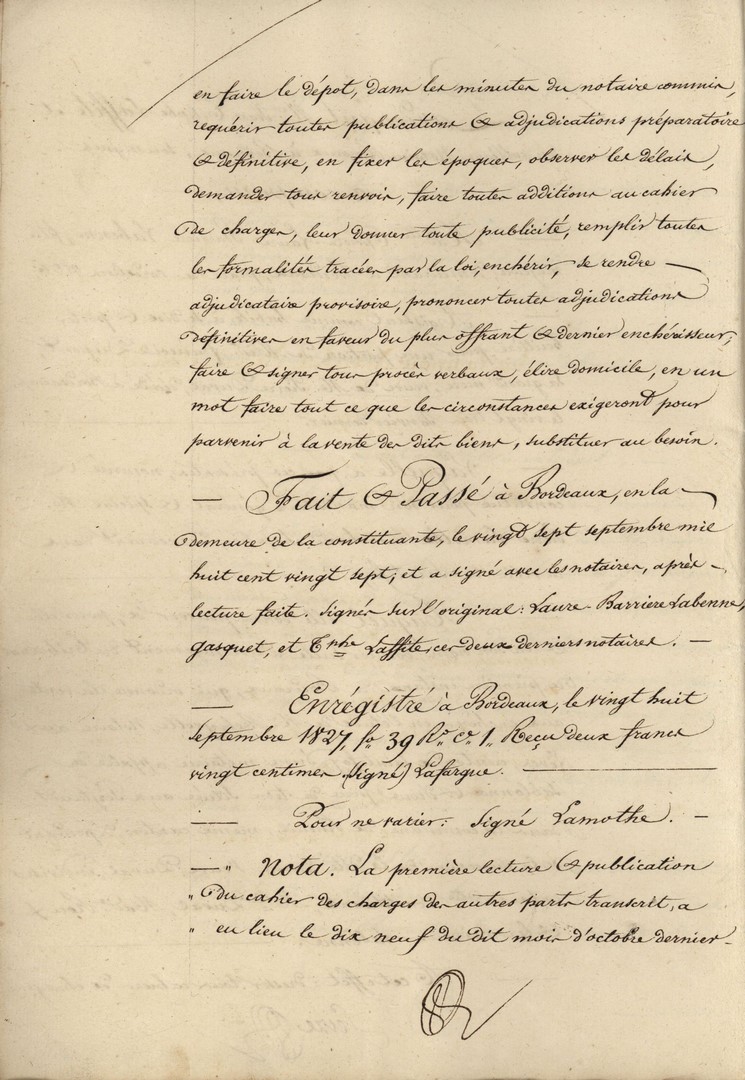 en faire le dépot, dans les minutes du notaire commis,
requérir toutes publications & adjudications préparatoire
& définitive, en fixer les époques, observer les délais,
demander tous renvois, faire toutes additions au cahier
de charges, leur donner toute publicité, remplir toutes
les formalités tracées par la loi, enchérir, se rendre —
adjudicataire provisoire, prononcer toutes adjudications
définitives en faveur du plus offrant & dernier enchérisseur;
faire & signer tous procès verbaux, élire domicile, en un
mot faire tout ce que les circonstances exigeront pour
parvenir à la vente des dits biens, substituer au besoin.
— Fait & Passé à Bordeaux, en la —
demeure de la constituante, le vingt sept septembre mil
huit cent vingt sept; et a signé avec les notaires, après —
lecture faite. Signés sur l'original: Laure Barriere Labenne,
gasquet, et Tphe Laffite, ces deux derniers notaires. —
— Enrégistré à Bordeaux, le vingt huit
septembre 1827, fo 39 Ro. ce 1,, Reçu deux francs
vingt centimes (signé) Lafargue. —
— Pour ne varier: Signé Lamothe. —
— " Nota. La première lecture & publication
" du cahier des charges des autres parts transcrit, a
" eu lieu le dix neuf du dit mois d'octobre dernier —